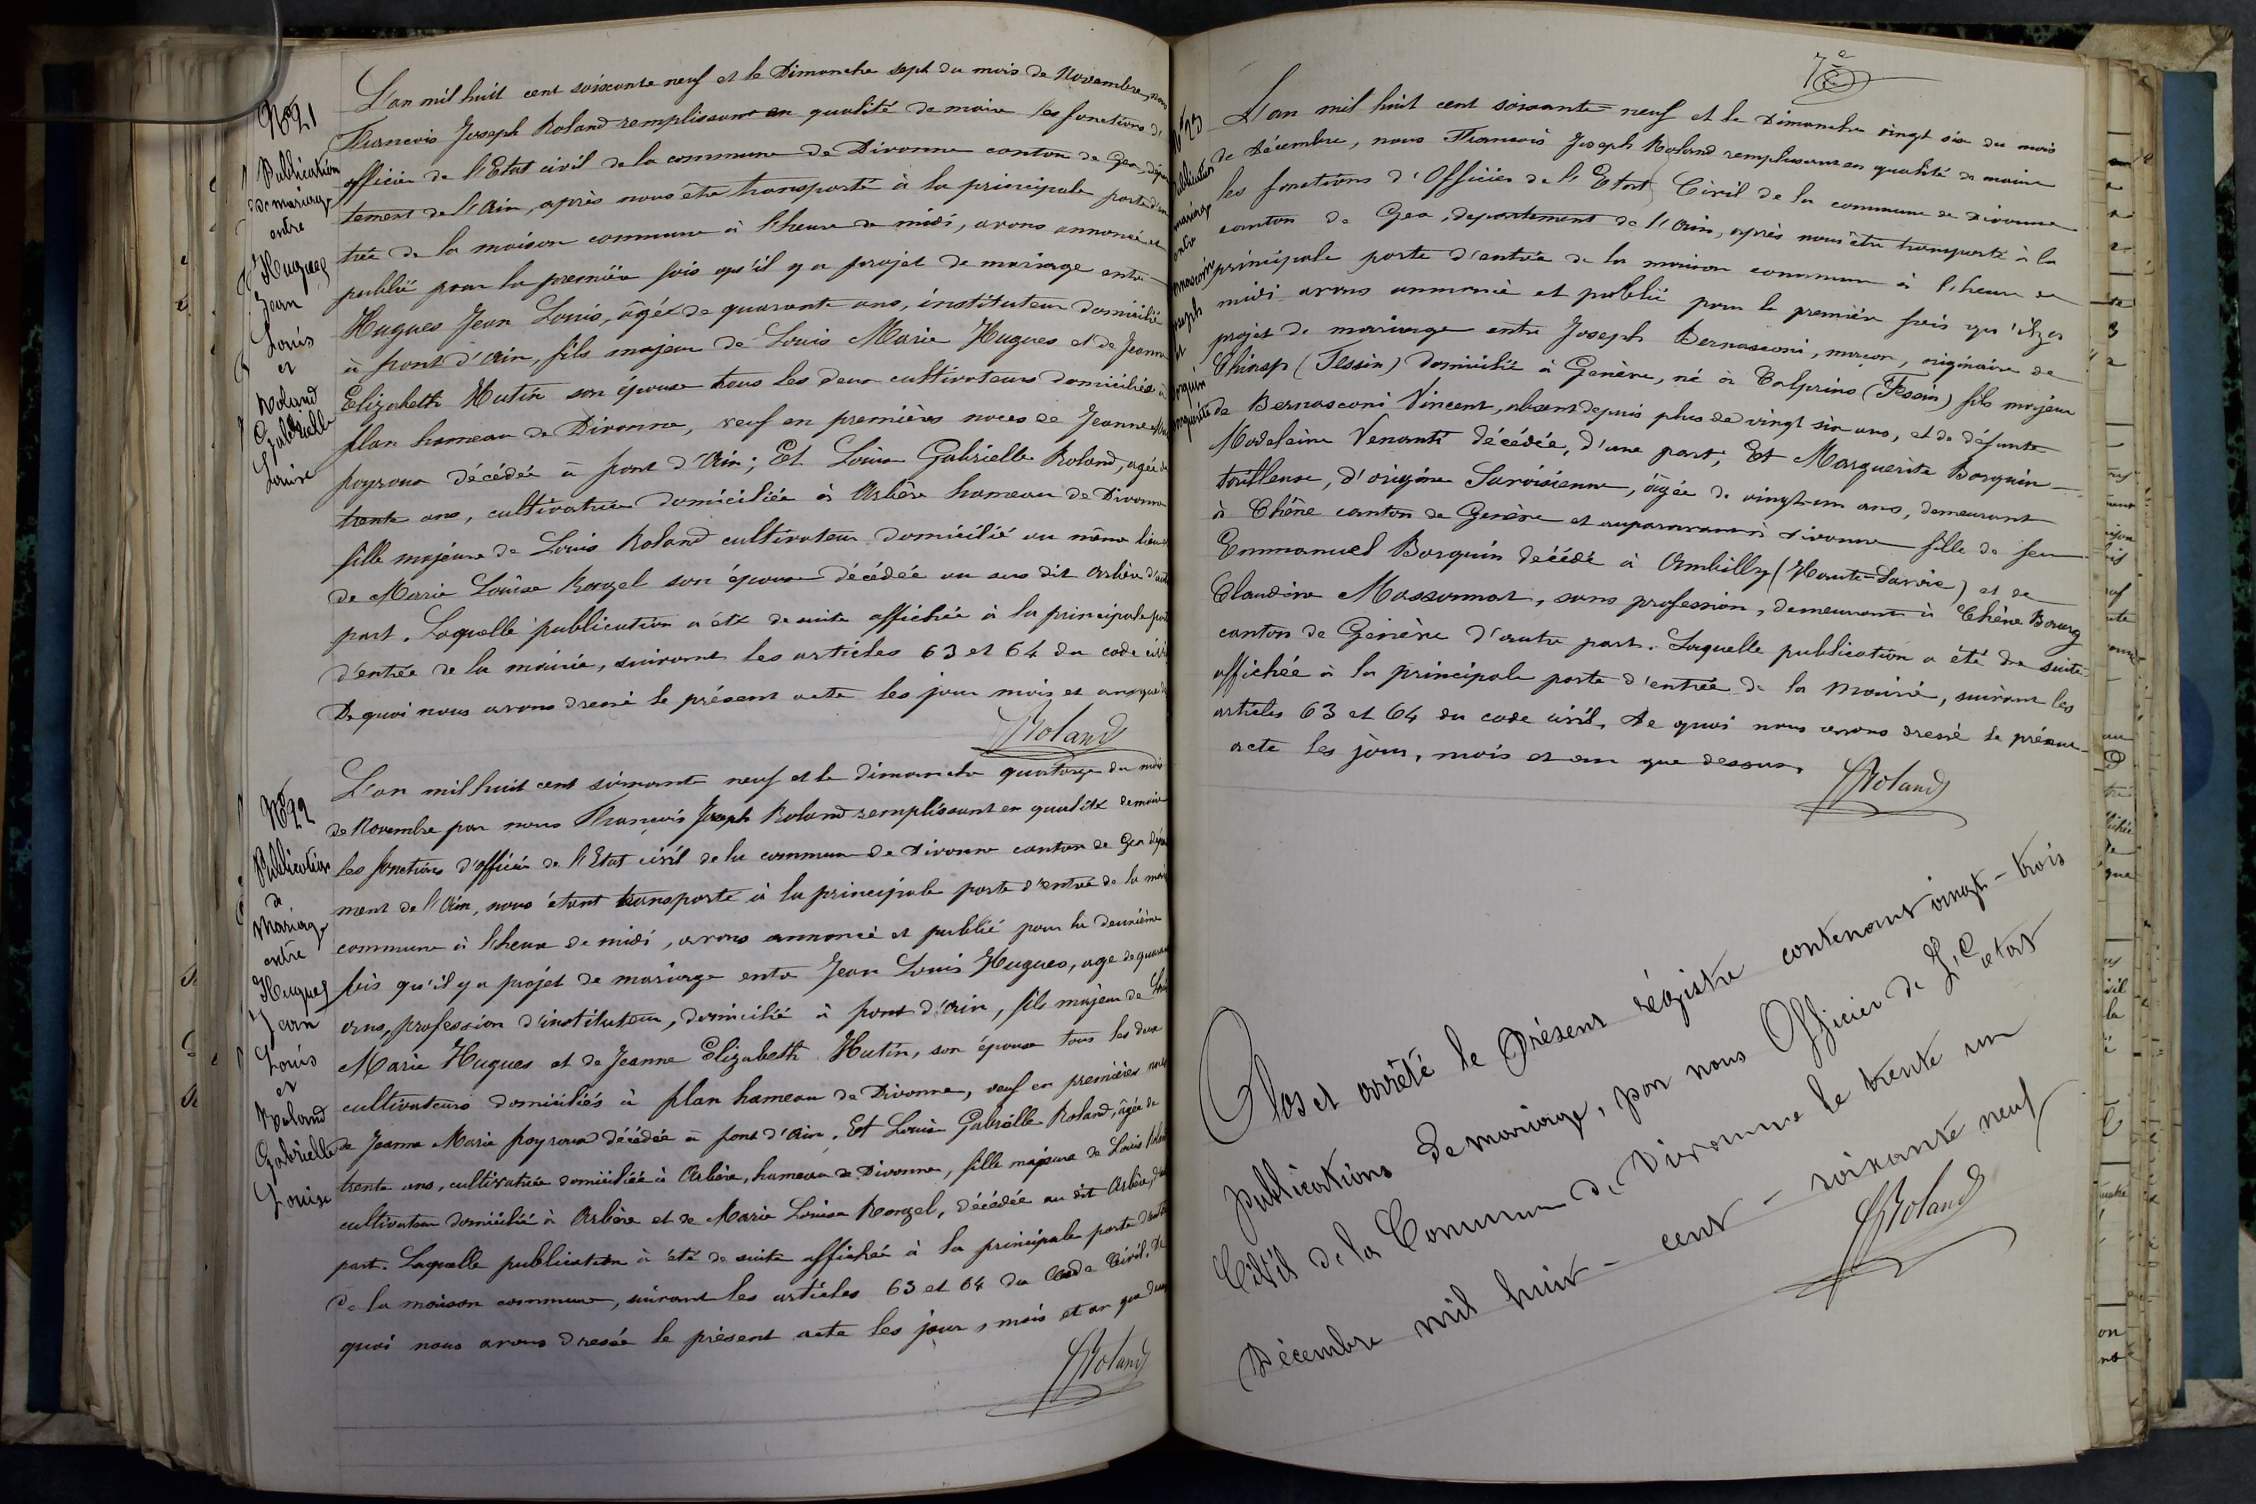 No 21
Publication
de mariage
entre
Hugues
Jean
Louis
et
Roland
Gabrielle
Louise
L'an mil huit cent soixante neuf et le Dimanche sept du mois de Novembre, nous
François Joseph Roland remplissant en qualité de maire les fonctions d'
officier de l'Etat civil de la commune de Divonne canton de Gex, dépar
tement de l'Ain, après nous être transporté à la principale porte d'en
trée de la maison commune à l'heure de midi, avons annoncé et
publié pour la première fois qu'il y a projet de mariage entre
Hugues Jean Louis, âgé de quarante ans, instituteur domicilié
à pont d'Ain, fils majeur de Louis Marie Hugues et de Jeanne
Elizabeth Hutin son épouse tous les deux cultivateurs domiciliés à
plan hameau de Divonne, veuf en premières noces de Jeanne
poyroux décédée à pont d'Ain; Et Louise Gabrielle Roland, agée de
trente ans, cultivatrice domiciliée à Arbère hameau de Divonne
fille majeure de Louis Roland cultivateur domicilié au même lieu et
de Marie Louise Ronzel son épouse décédée au sus dit Arbère d'autre
part. Laquelle publication a été de suite affichée à la principale porte
d'entrée de la mairie, suivant les articles 63 et 64 du code civil
De quoi nous avons dressé le présent acte les jour mois et an que
Roland
No 22
Publication
de
Mariage
entre
Hugues
Jean
Louis
et
Roland
Gabrielle
Louise
L'an mil huit cent soixante neuf et le dimanche quatorze du mois
de Novembre par nous François Joseph Roland remplissant en qualité de maire
les fonctions d'officier de l'Etat civil de la commune de Divonne canton de Gex départe
ment de l'Ain, nous étant transporté à la principale porte d'entrée de la maison
commune à l'heure de midi, avons annoncé et publié pour la deuxième
fois qu'il y a projet de mariage entre Jean Louis Hugues, age de quarante
ans, profession d'instituteur, domicilié à pont d'Ain, fils majeur de Louis
Marie Hugues et de Jeanne Elizabeth Hutin, son épouse tous les deux
cultivateurs domiciliés à plan hameau de Divonne, veuf en premières noces
de Jeanne Marie poyroux décédée à pont d'Ain, Et Louise Gabrielle Roland, âgée de
trente ans, cultivatrice domiciliée à Arbère, hameau de Divonne, fille majeure de Louis Roland
cultivateur domicilié à Arbère et de Marie Louise Ronzel, décédée au dit Arbère, d'autre
part. Laquelle publication à été de suite affichée à la principale porte d'entrée
de la maison commune, suivant les articles 63 et 64 du Code Civil. De
quoi nous avons dressée le présent acte les jour, mois et an que dessus
Roland
7e
No 23
Publication
mariage
entre
Joseph
et
Borquin
Marguerite
L'an mil huit cent soixante neuf et le Dimanche vingt six du mois
de Décembre, nous François Joseph Roland remplissant en qualité de maire
les fonctions d'Officier de l'Etat Civil de la commune de Divonne
canton de Gex, departement de l'Ain, après nous être transporté à la
principale porte d'entrée de la maison commune à l'heure de
midi avons annoncé et publié pour la première fois qu'il y a
projet de mariage entre Joseph Bernasconi, maçon, originaire de
Chiasso (Tessin) domicilié à Genève, né à (Tessin) fils majeur
de Bernasconi Vincent, absent depuis plus de vingt six ans, et de défunte
Madeleine Venanti décédée, d'une part; Et Marguerite Borquin
tailleuse, d'origine Savoisienne, âgée de vingt-un ans, demeurant
à Chêne canton de Genève et auparavant à Divonne fille de feu
Emmanuel Borquin décédé à Ambilly (Haute-Savoie) et de
Claudine Massonnat, sans profession, demeurant à Chêne Bourg
canton de Genève d'autre part. Laquelle publication a été de suite
affichée à la principale porte d'entrée de la Mairie, suivant les
articles 63 et 64 du code civil, De quoi nous avons dressé le présent
acte les jour, mois et an que dessus,
Roland
Clos et arrêté le Présent régistre contenant vingt-trois
publications de mariage, par nous Officier de L'Etat
Civil de la Commune de Divonne le trente un
Décembre mil huit-cent-soixante neuf
Roland